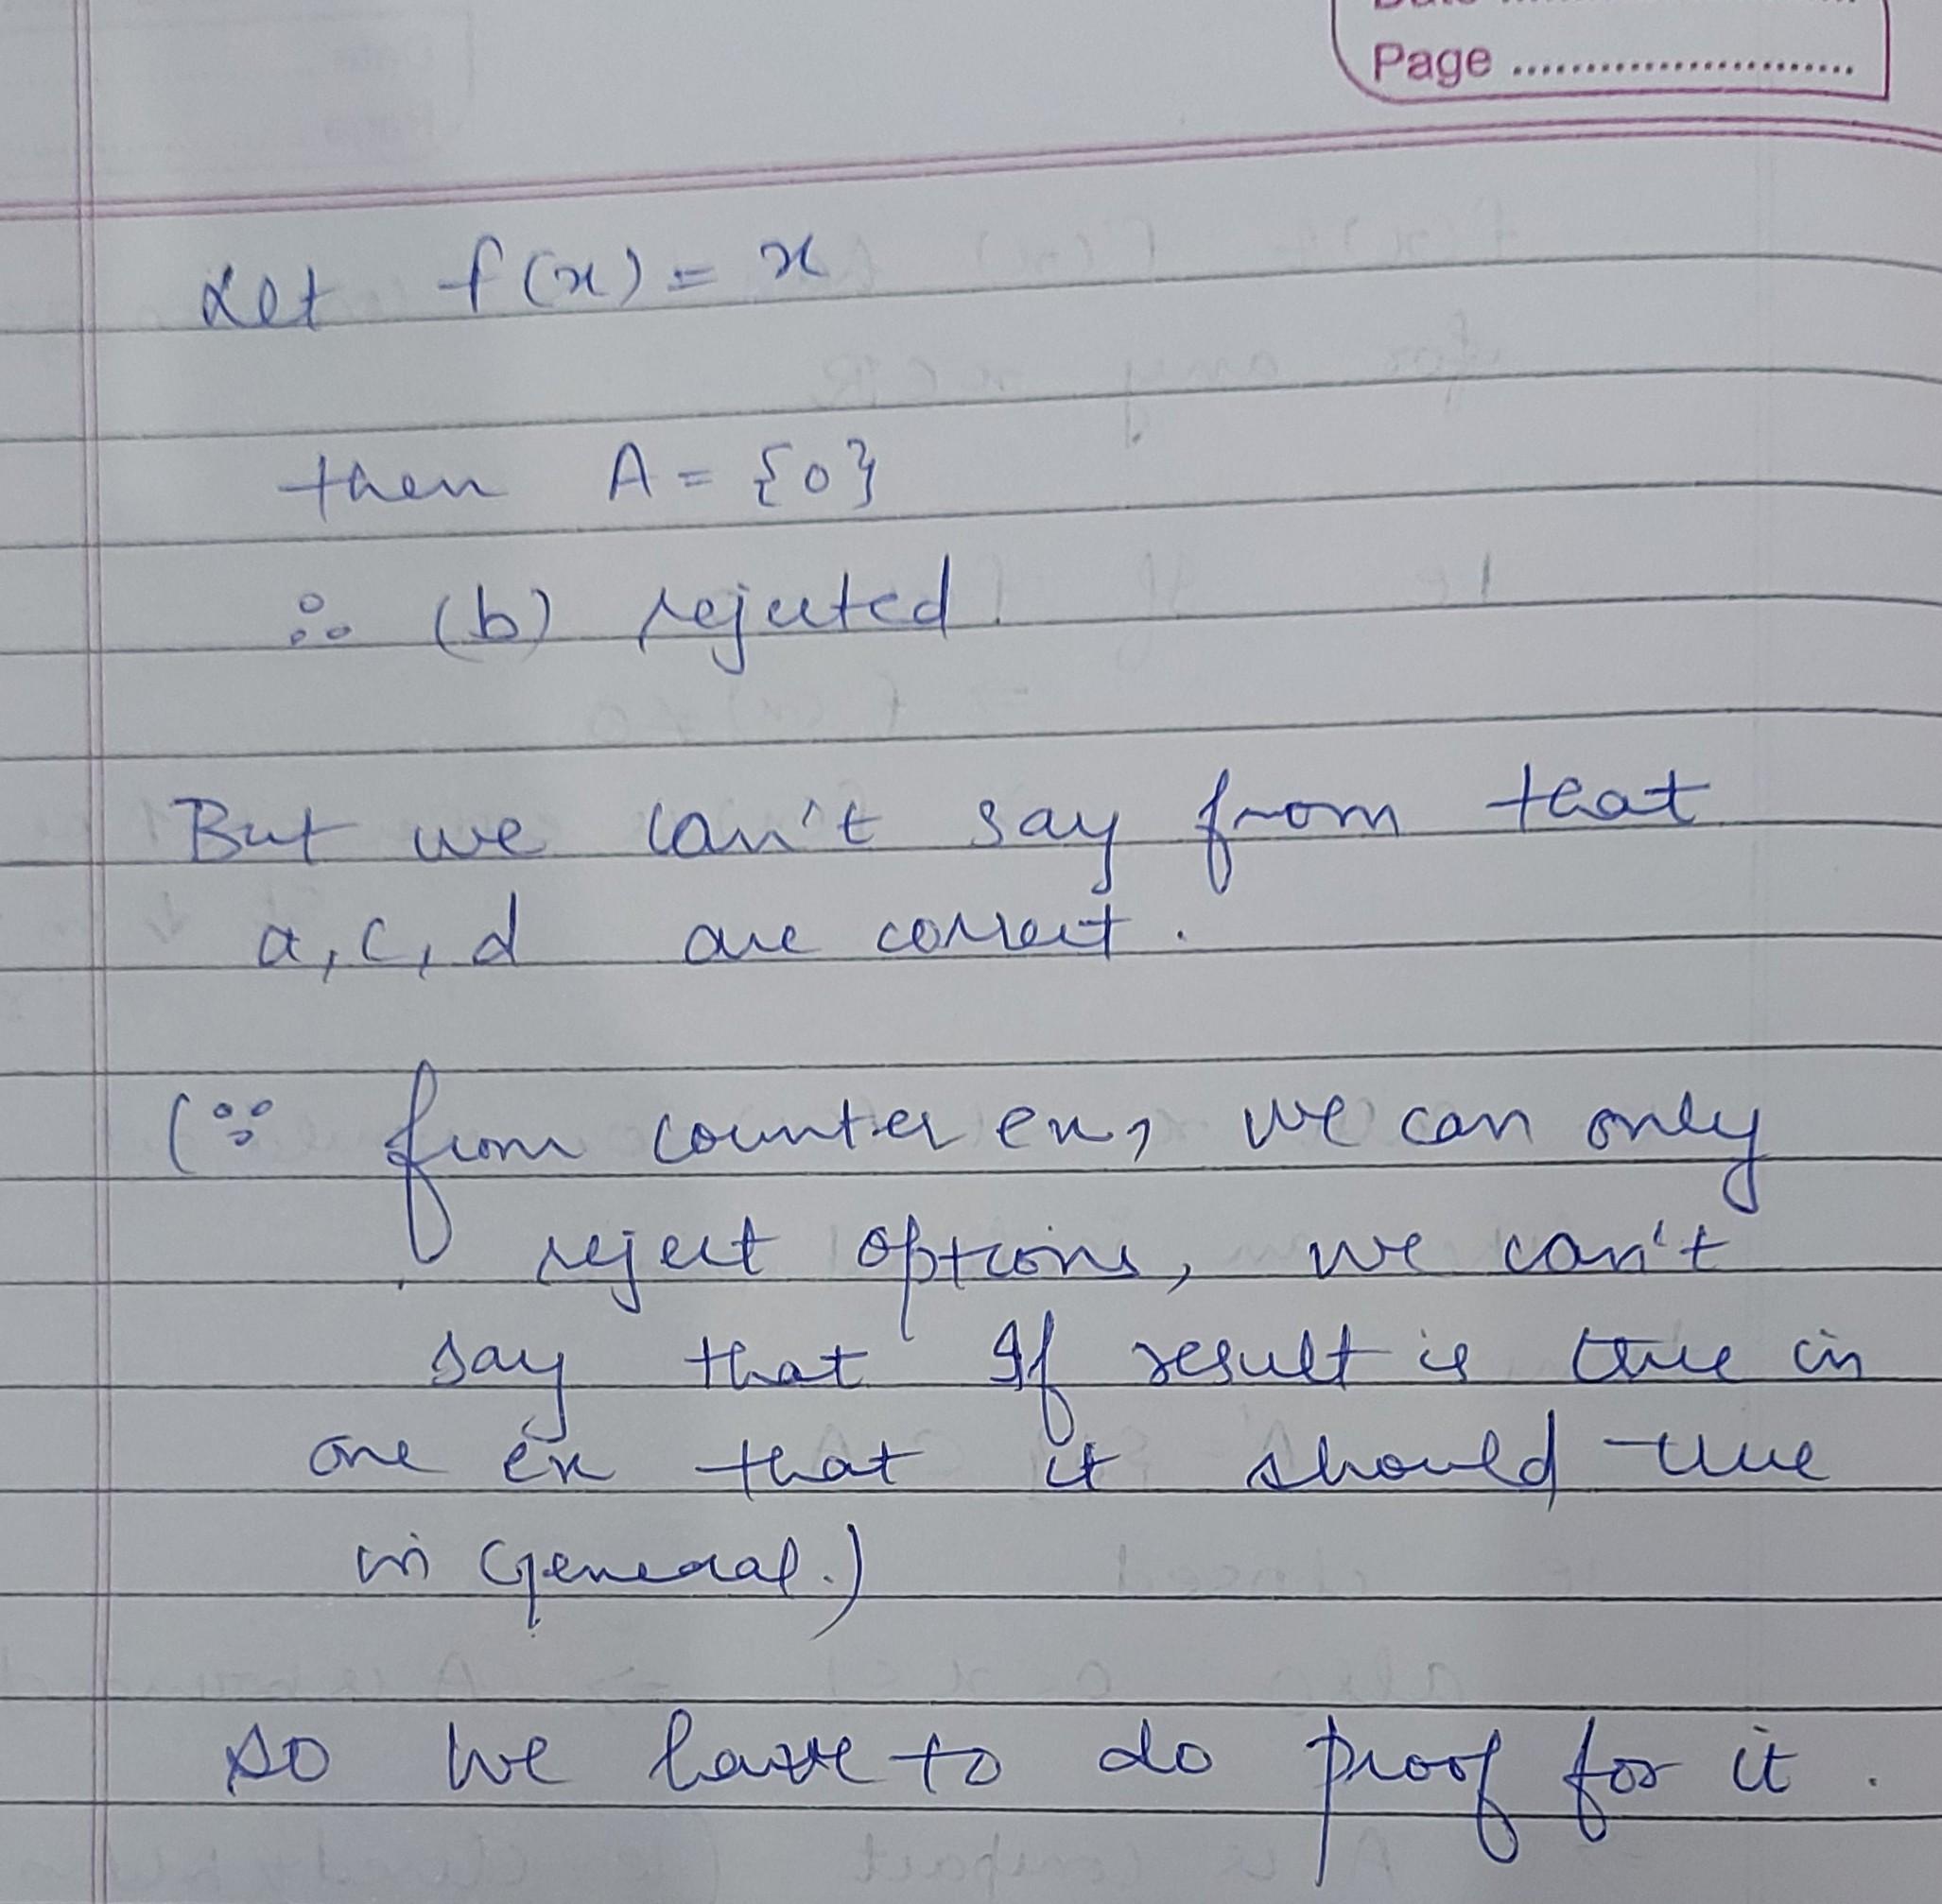 Page ........................
Let f(x) = x
then A = {0}
∴ (b) rejected
But we can't say from that
a, c, d are correct.
(∵ from counter ex, we can only
reject options, we can't
say that If result is true in
one ex that it should true
in General.)
so we have to do proof for it.